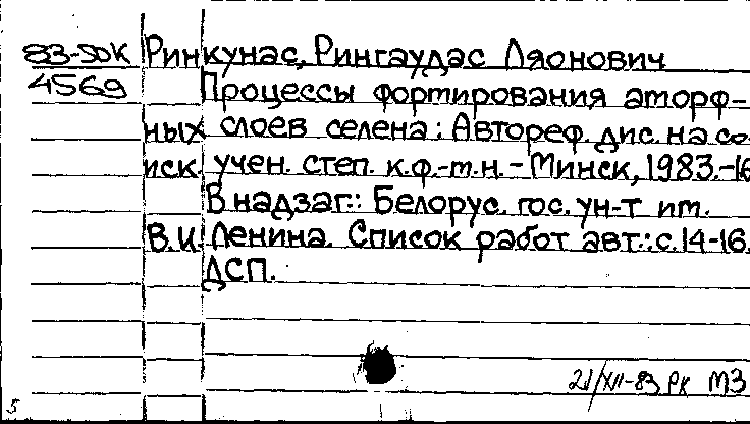 83-50К Ринкунас, Рингаудас Ляонович
4569 Процессы формирования аморф-
ных слоев селена: Автореф. дис. на со-
иск. учен. степ. к.ф.-м.н. - Минск, 1983.-16
В надзаг.: Белорус. гос. ун-т им.
В.И. Ленина. Список работ авт.: с. 14-16.
ДСП.
21/XII-83 РК МЗ
5